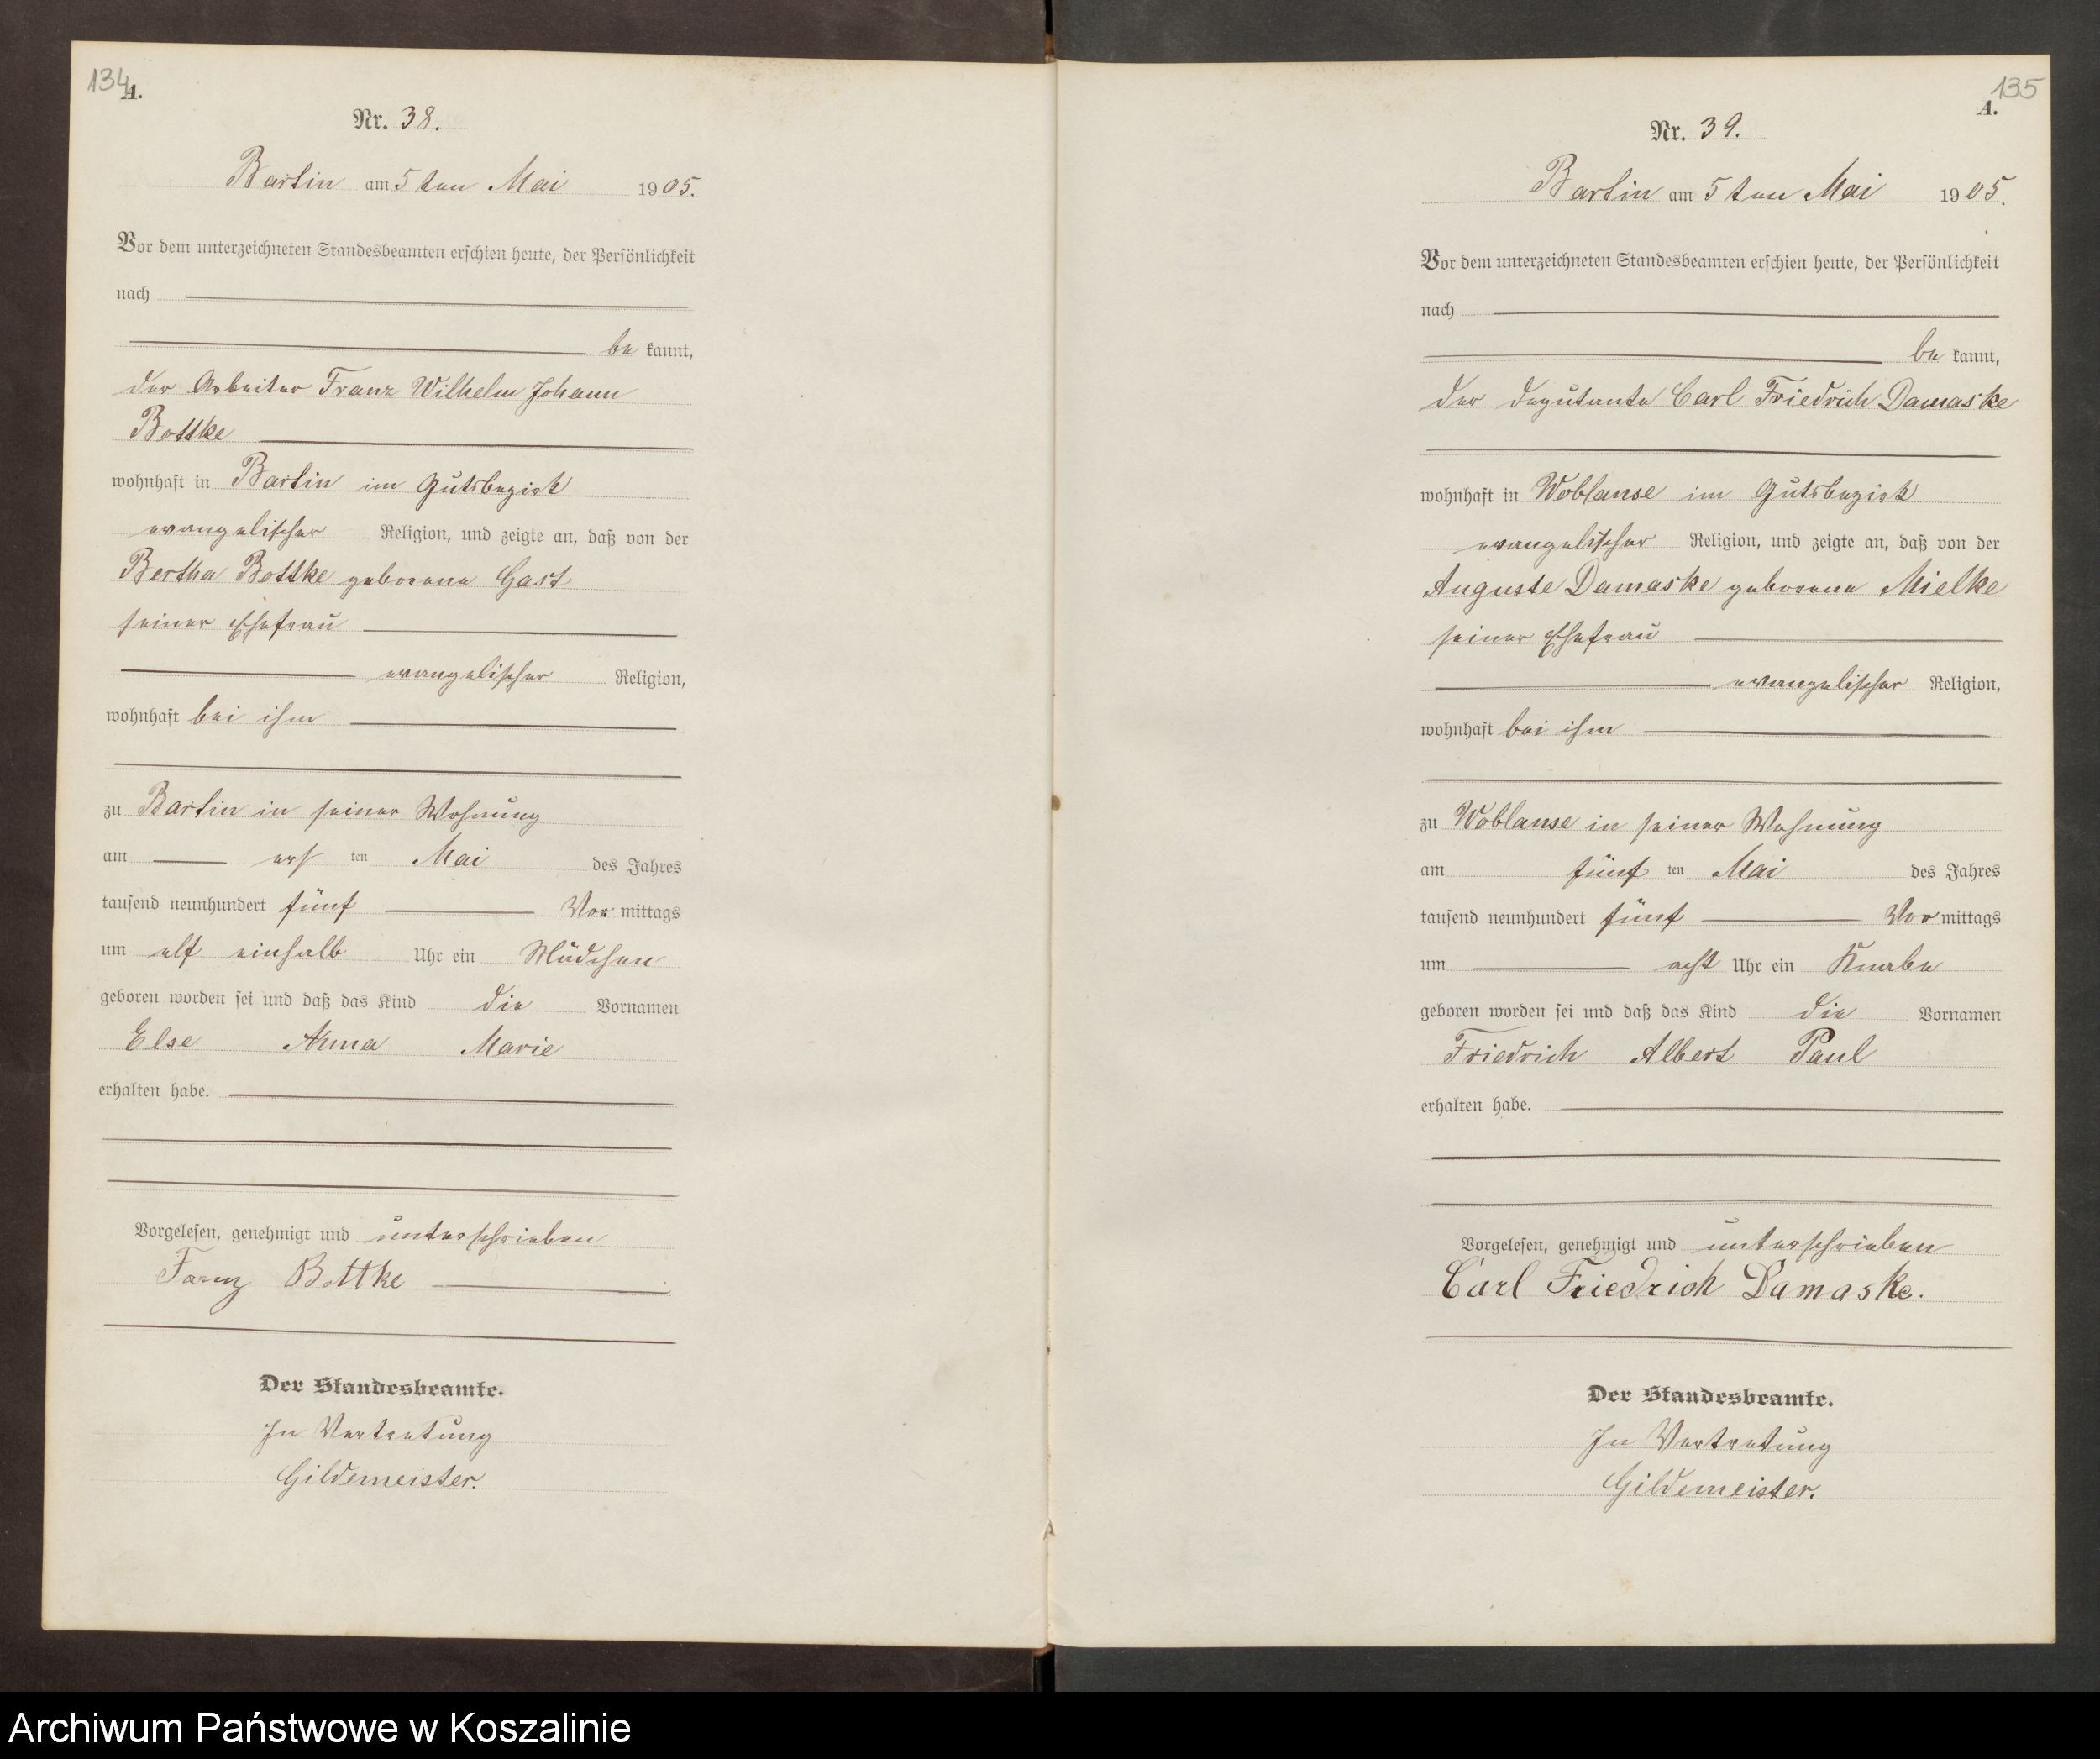 134
A.
Nr. 38.
Bartin am 5ten Mai 1905.
Vor dem unterzeichneten Standesbeamten erschien heute, der Persönlichkeit
nach
be kannt,
der Arbeiter Franz Wilhelm Johann
Bottke
wohnhaft in Bartin im Gutsbezirk
evangelischer Religion, und zeigte an, daß von der
Bertha Bottke geborene Gast
seiner Ehefrau
evangelischer Religion,
wohnhaft bei ihm
zu Bartin in seiner Wohnung
am ers ten Mai des Jahres
tausend neunhundert fünf Vor mittags
um elf einhalb Uhr ein Mädchen
geboren worden sei und daß das Kind die Vornamen
Else Anna Marie
erhalten habe.
Vorgelesen, genehmigt und unterschrieben
Franz Bottke
Der Standesbeamte.
In Vertretung
Gildemeister.
135
A.
Nr. 39.
Bartin am 5ten Mai 1905.
Vor dem unterzeichneten Standesbeamten erschien heute, der Persönlichkeit
nach
be kannt,
der Deputante Carl Friedrich Damaske
wohnhaft in Woblanse im Gutsbezirk
evangelischer Religion, und zeigte an, daß von der
Auguste Damaske geborene Mielke
seiner Ehefrau
evangelischer Religion,
wohnhaft bei ihm
zu Woblanse in seiner Wohnung
am fünf ten Mai des Jahres
tausend neunhundert fünf Vor mittags
um acht Uhr ein Knabe
geboren worden sei und daß das Kind die Vornamen
Friedrich Albert Paul
erhalten habe.
Vorgelesen, genehmigt und unterschrieben
Carl Friedrich Damaske.
Der Standesbeamte.
In Vertretung
Gildemeister.
Archiwum Państwowe w Koszalinie